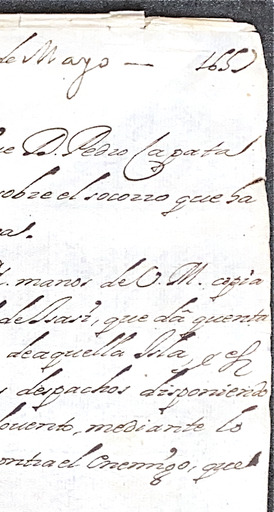 de Mayo — 165
ue D. Pedro Çapata
sobre el socorro que ha
as.
R. manos de V. M. copia
de Isasi, que dã quenta
de aquella Isla, y es
s despachos disponiendo
Convento, mediante lo
contra el enemigo, que